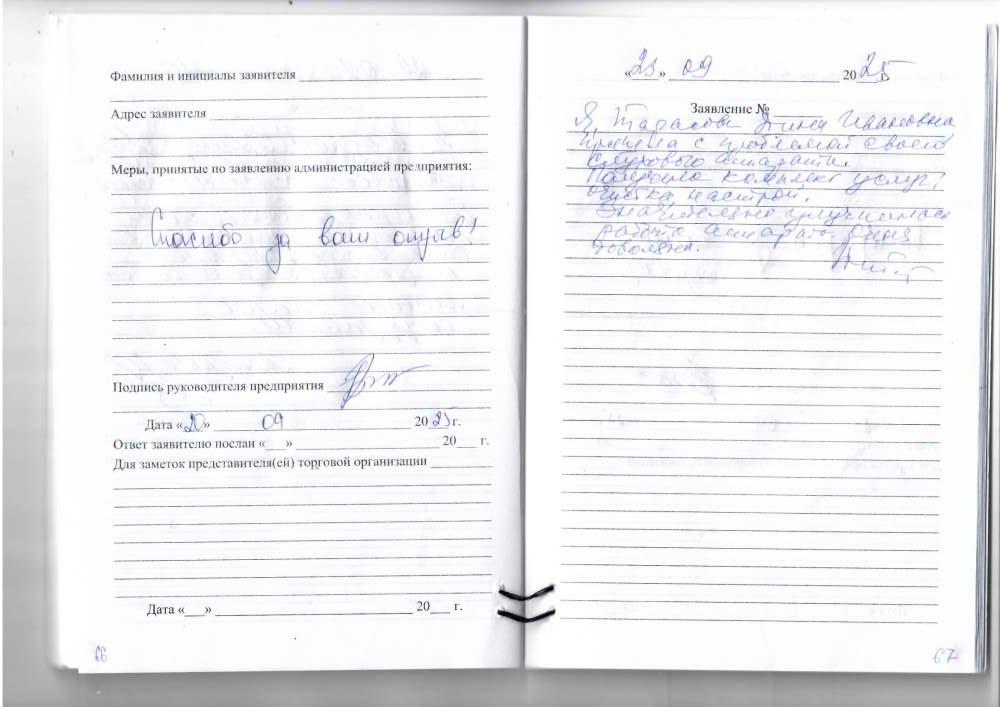 Фамилия и инициалы заявителя
Адрес заявителя
Меры, принятые по заявлению администрацией предприятия:
Спасибо за ваш отзыв!
Подпись руководителя предприятия
Дата «20» 09 2025г.
Ответ заявителю послан «___» 20___ г.
Для заметок представителя(ей) торговой организации
Дата «___» 20___ г.
66
«23» 09 2025
Заявление №
Я Тарасова Нина Ивановна
пришла с проблемой своего
слухового аппарата.
Получила комплекс услуг,
чистка, настрой.
Значительно улучшилась
работа аппарата. Очень
довольна.
67